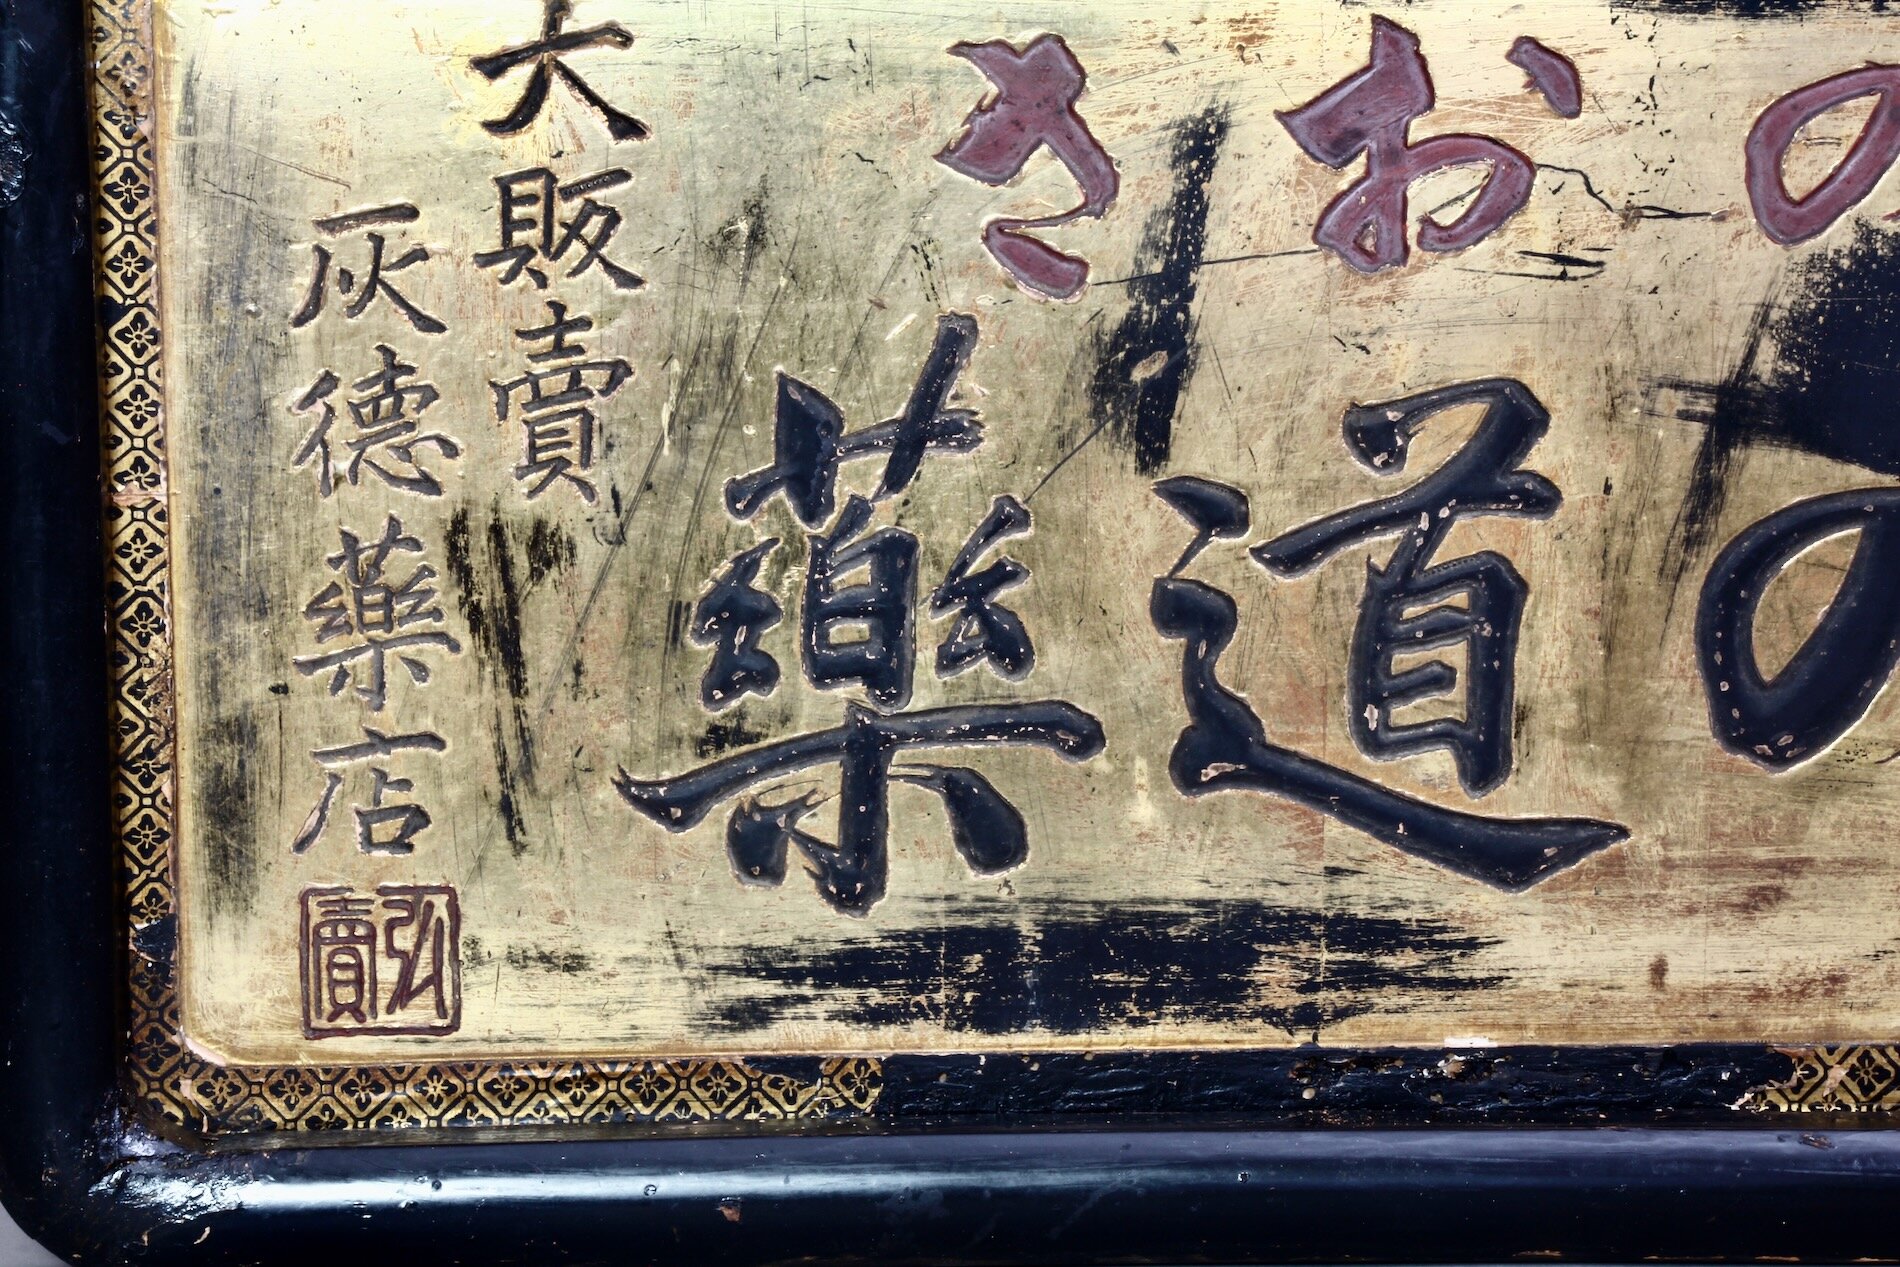 のおき
の道藥
大販賣
灰德藥店
弘賣